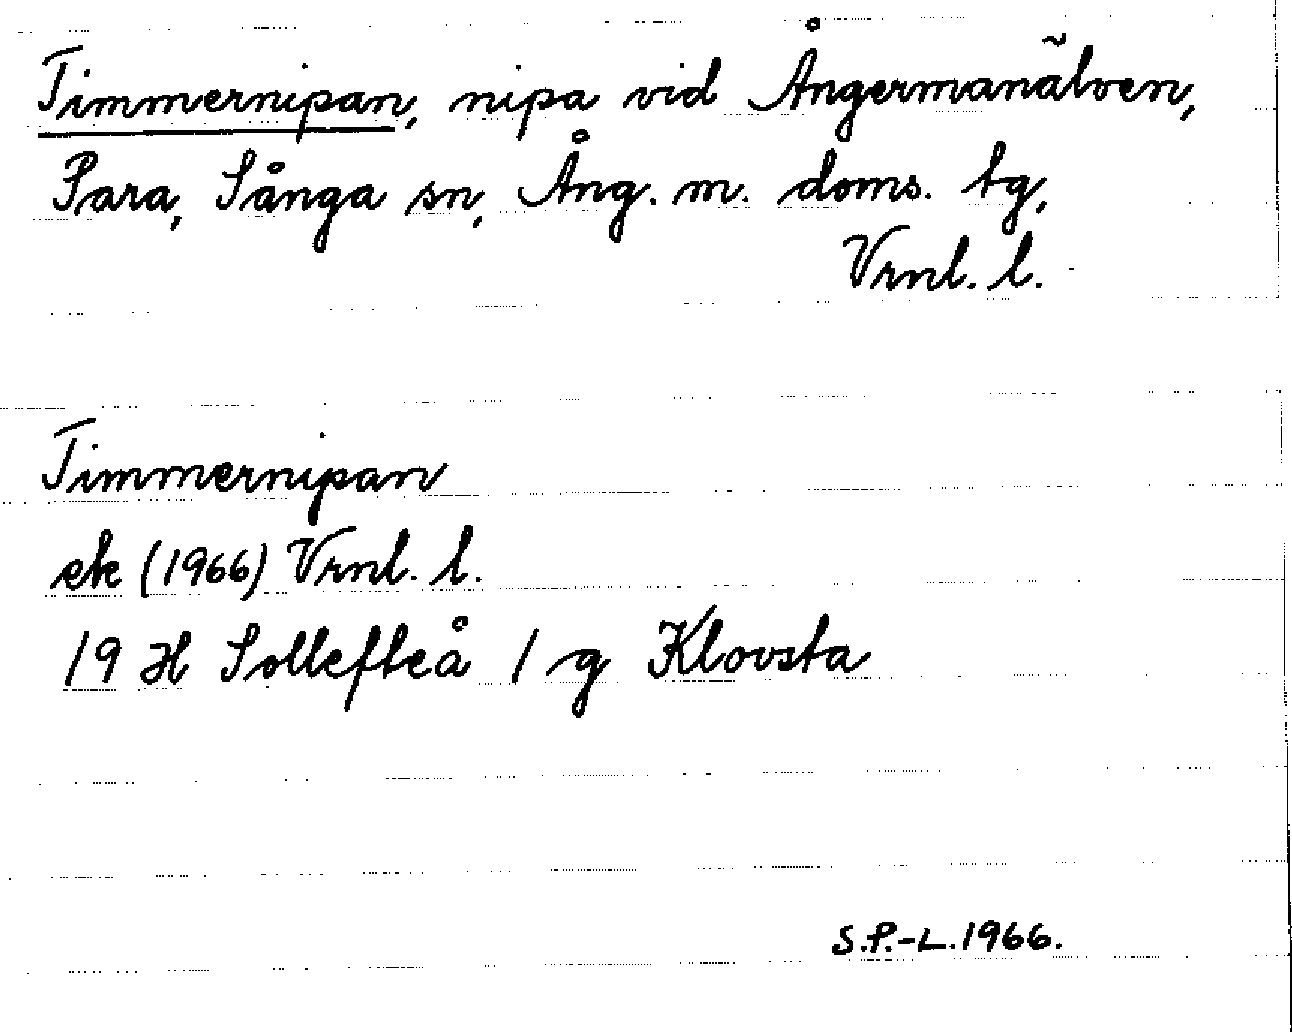 Timmernipan, nipa vid Ångermanälven,
Para, Sånga sn, Ång. m. doms. tg,
Vrnl. l.
Timmernipan
ek (1966) Vrnl. l.
19 H Sollefteå 1 g Klovsta
S.P.-L. 1966.